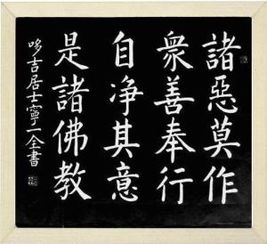 諸惡莫作
衆善奉行
自净其意
是諸佛教
吉居士寧一全書